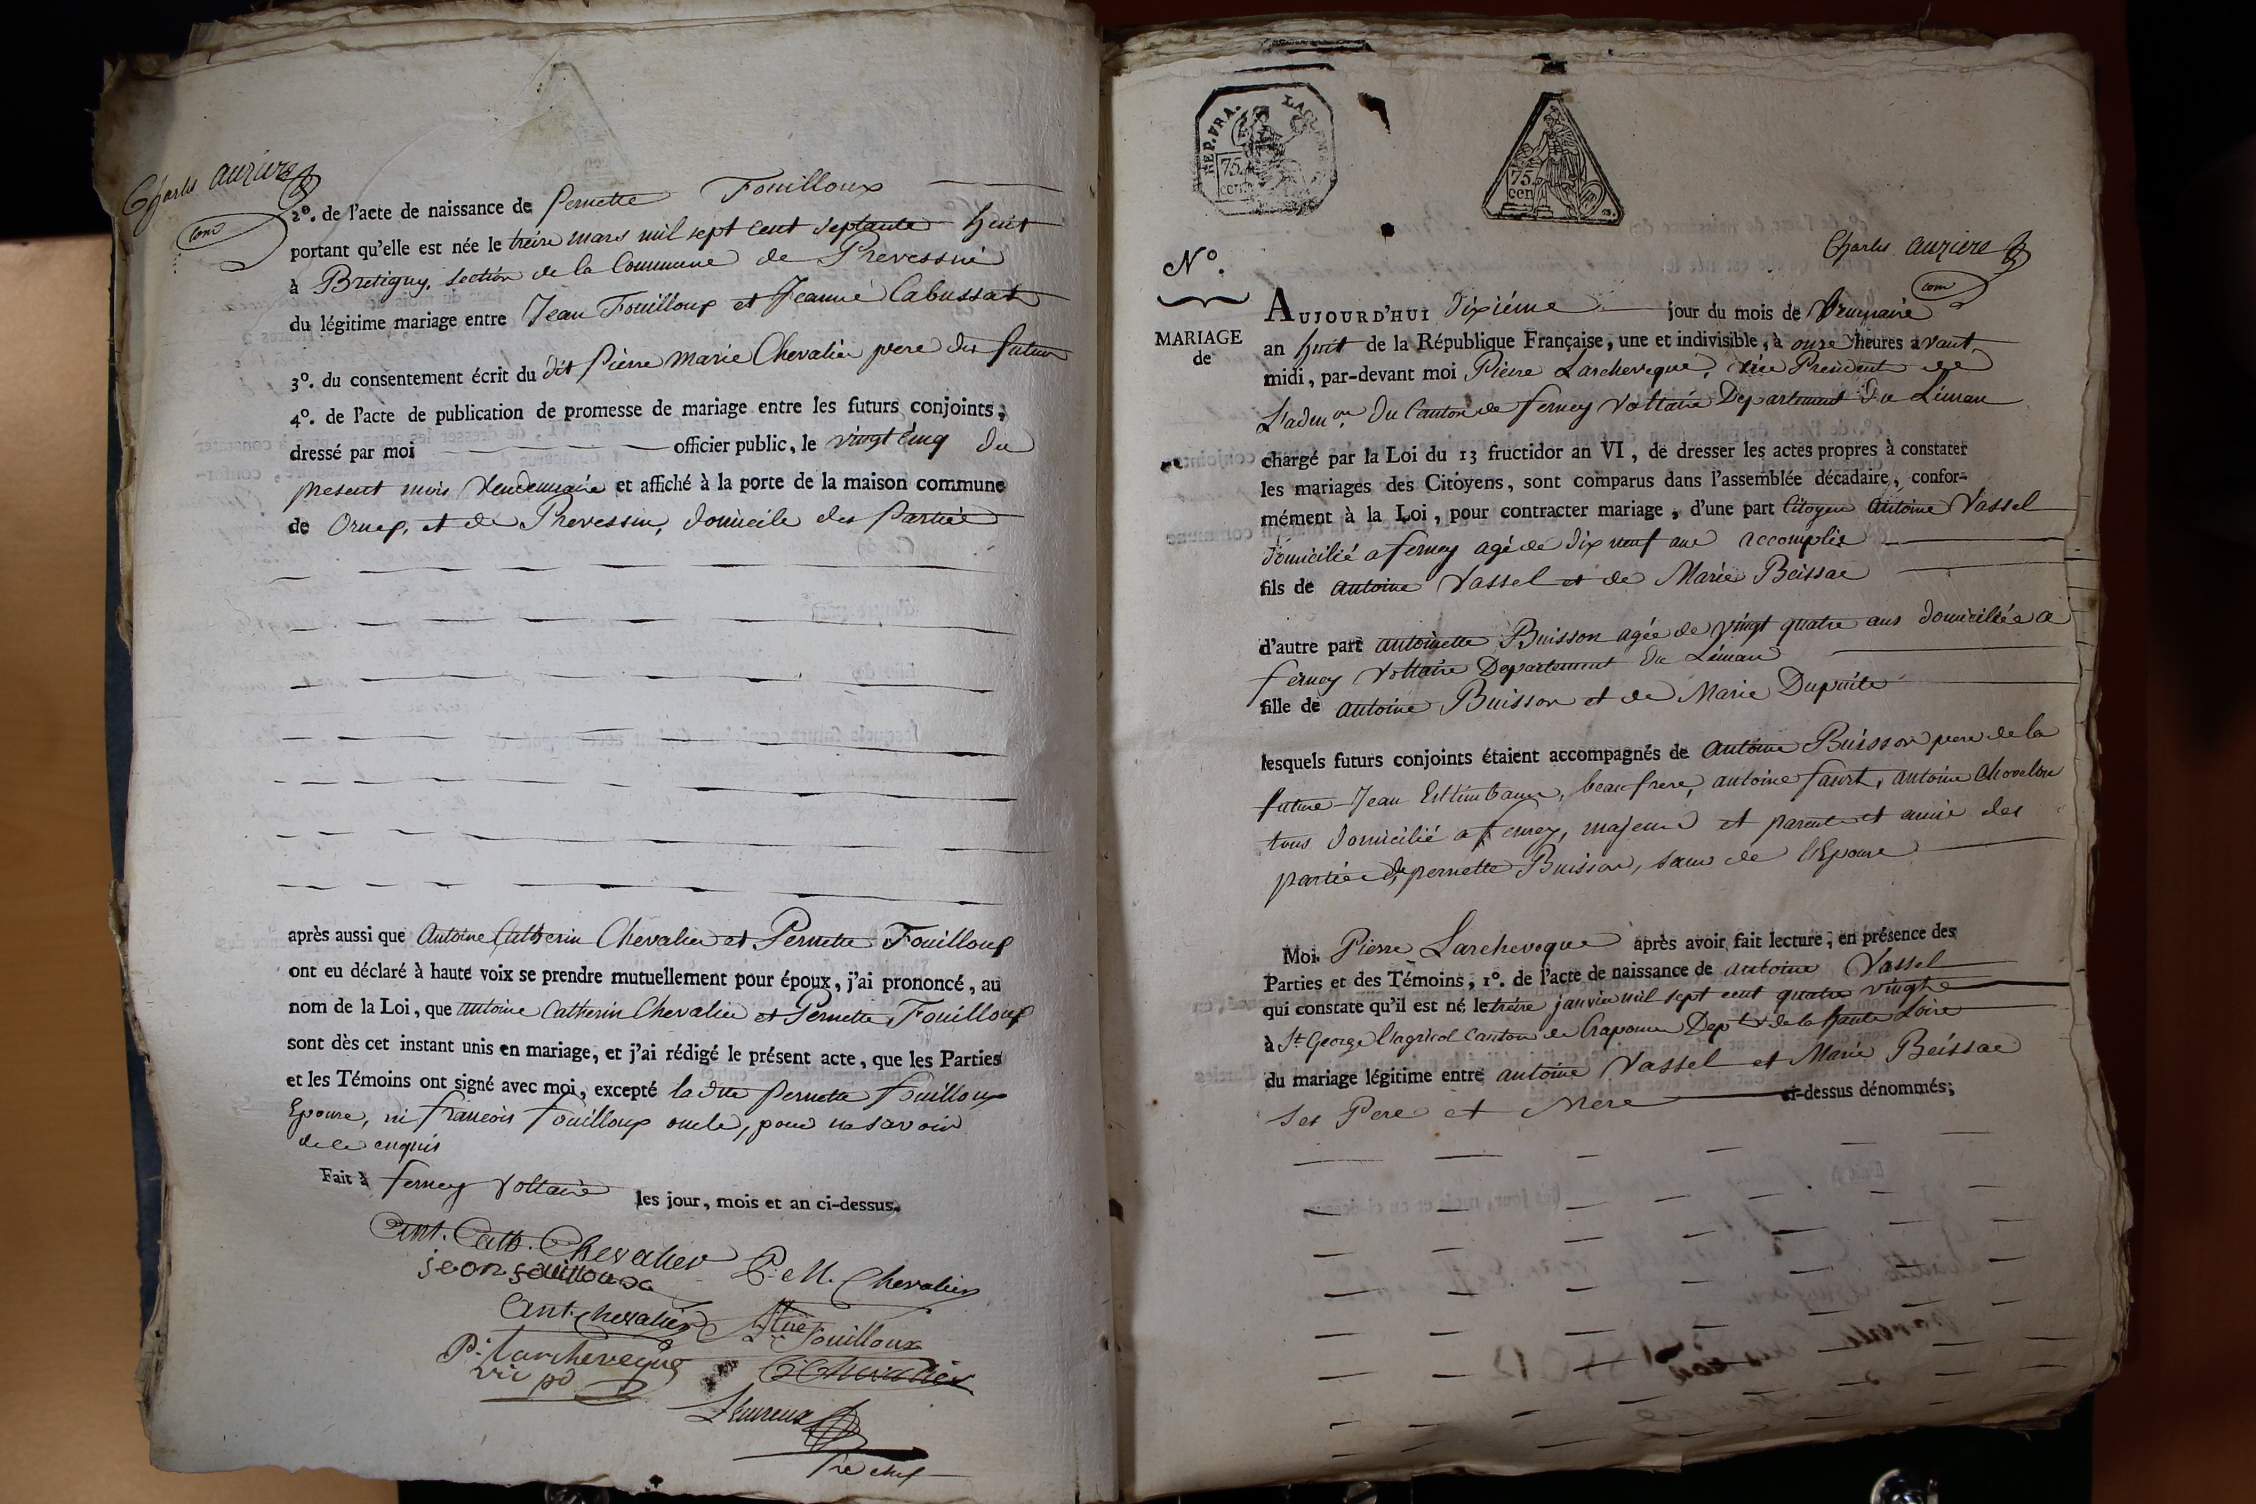 Charles auziere
com
2º. de l'acte de naissance de Pernette Fouilloux
portant qu'elle est née le treize mars mil sept cent septante huit
à Bretigny, section de la Commune de Prevessin
du légitime mariage entre Jean Fouilloux et Jeanne Cabussat
3º. du consentement écrit du dit Pierre Marie Chevalier pere du futur
4º. de l'acte de publication de promesse de mariage entre les futurs conjoints,
dressé par moi officier public, le vingt cinq du
present mois Vendemiaire et affiché à la porte de la maison commune
de Ornex, et de Prevessin, domicile des Parties
après aussi que Antoine Catherin Chevalier et Pernette Fouilloux
ont eu déclaré à haute voix se prendre mutuellement pour époux, j'ai prononcé, au
nom de la Loi, que antoine Catherin Chevalier et Pernette Fouilloux
sont dès cet instant unis en mariage, et j'ai rédigé le présent acte, que les Parties
et les Témoins ont signé avec moi, excepté la dite Pernette Fouilloux
Epouse, ni francois fouilloux oncle, pour ne savoir
de ce enquis
Fait à ferney Voltaire les jour, mois et an ci-dessus.
Ant. Cath. Chevalier P. M. Chevalier
jean fouilloux
Ant. chevalier Fouilloux
P. Larcheveque Chevalier
vic pd
chef
REP. FRA.
75.
cent
75.
cen
Nº.
Charles auziere
com
MARIAGE
de
AUJOURD'HUI dixiéme jour du mois de Brumaire
an huit de la République Française, une et indivisible, à onze heures avant
midi, par-devant moi Pierre Larcheveque, vice President de
L'admon. du Canton de ferney Voltaire Departement du Léman
chargé par la Loi du 13 fructidor an VI, de dresser les actes propres à constater
les mariages des Citoyens, sont comparus dans l'assemblée décadaire, confor-
mément à la Loi, pour contracter mariage, d'une part Citoyen antoine Vassel
domicilié a ferney agé de dix neuf ans accomplis
fils de antoine Vassel et de Marie Beissac
d'autre part antoinette Buisson agée de vingt quatre ans domiciliée a
ferney Voltaire Departement du Léman
fille de antoine Buisson et de Marie Dupuite
lesquels futurs conjoints étaient accompagnés de antoine Buisson pere de la
future Jean beaufrere, antoine faurt, antoine Chovelon
tous domicilié a ferney, majeurs et parents et amis des
parties, pernette Buisson, sœur de l'Epouse
Moi Pierre Larcheveque après avoir fait lecture, en présence des
Parties et des Témoins, 1º. de l'acte de naissance de antoine Vassel
qui constate qu'il est né le treize janvier mil sept cent quatre vingts
à St. George Lagricol Canton de Craponne Dept. de la haute Loire
du mariage légitime entre antoine Vassel et Marie Beissac
ses Pere et Mere ci-dessus dénommés;